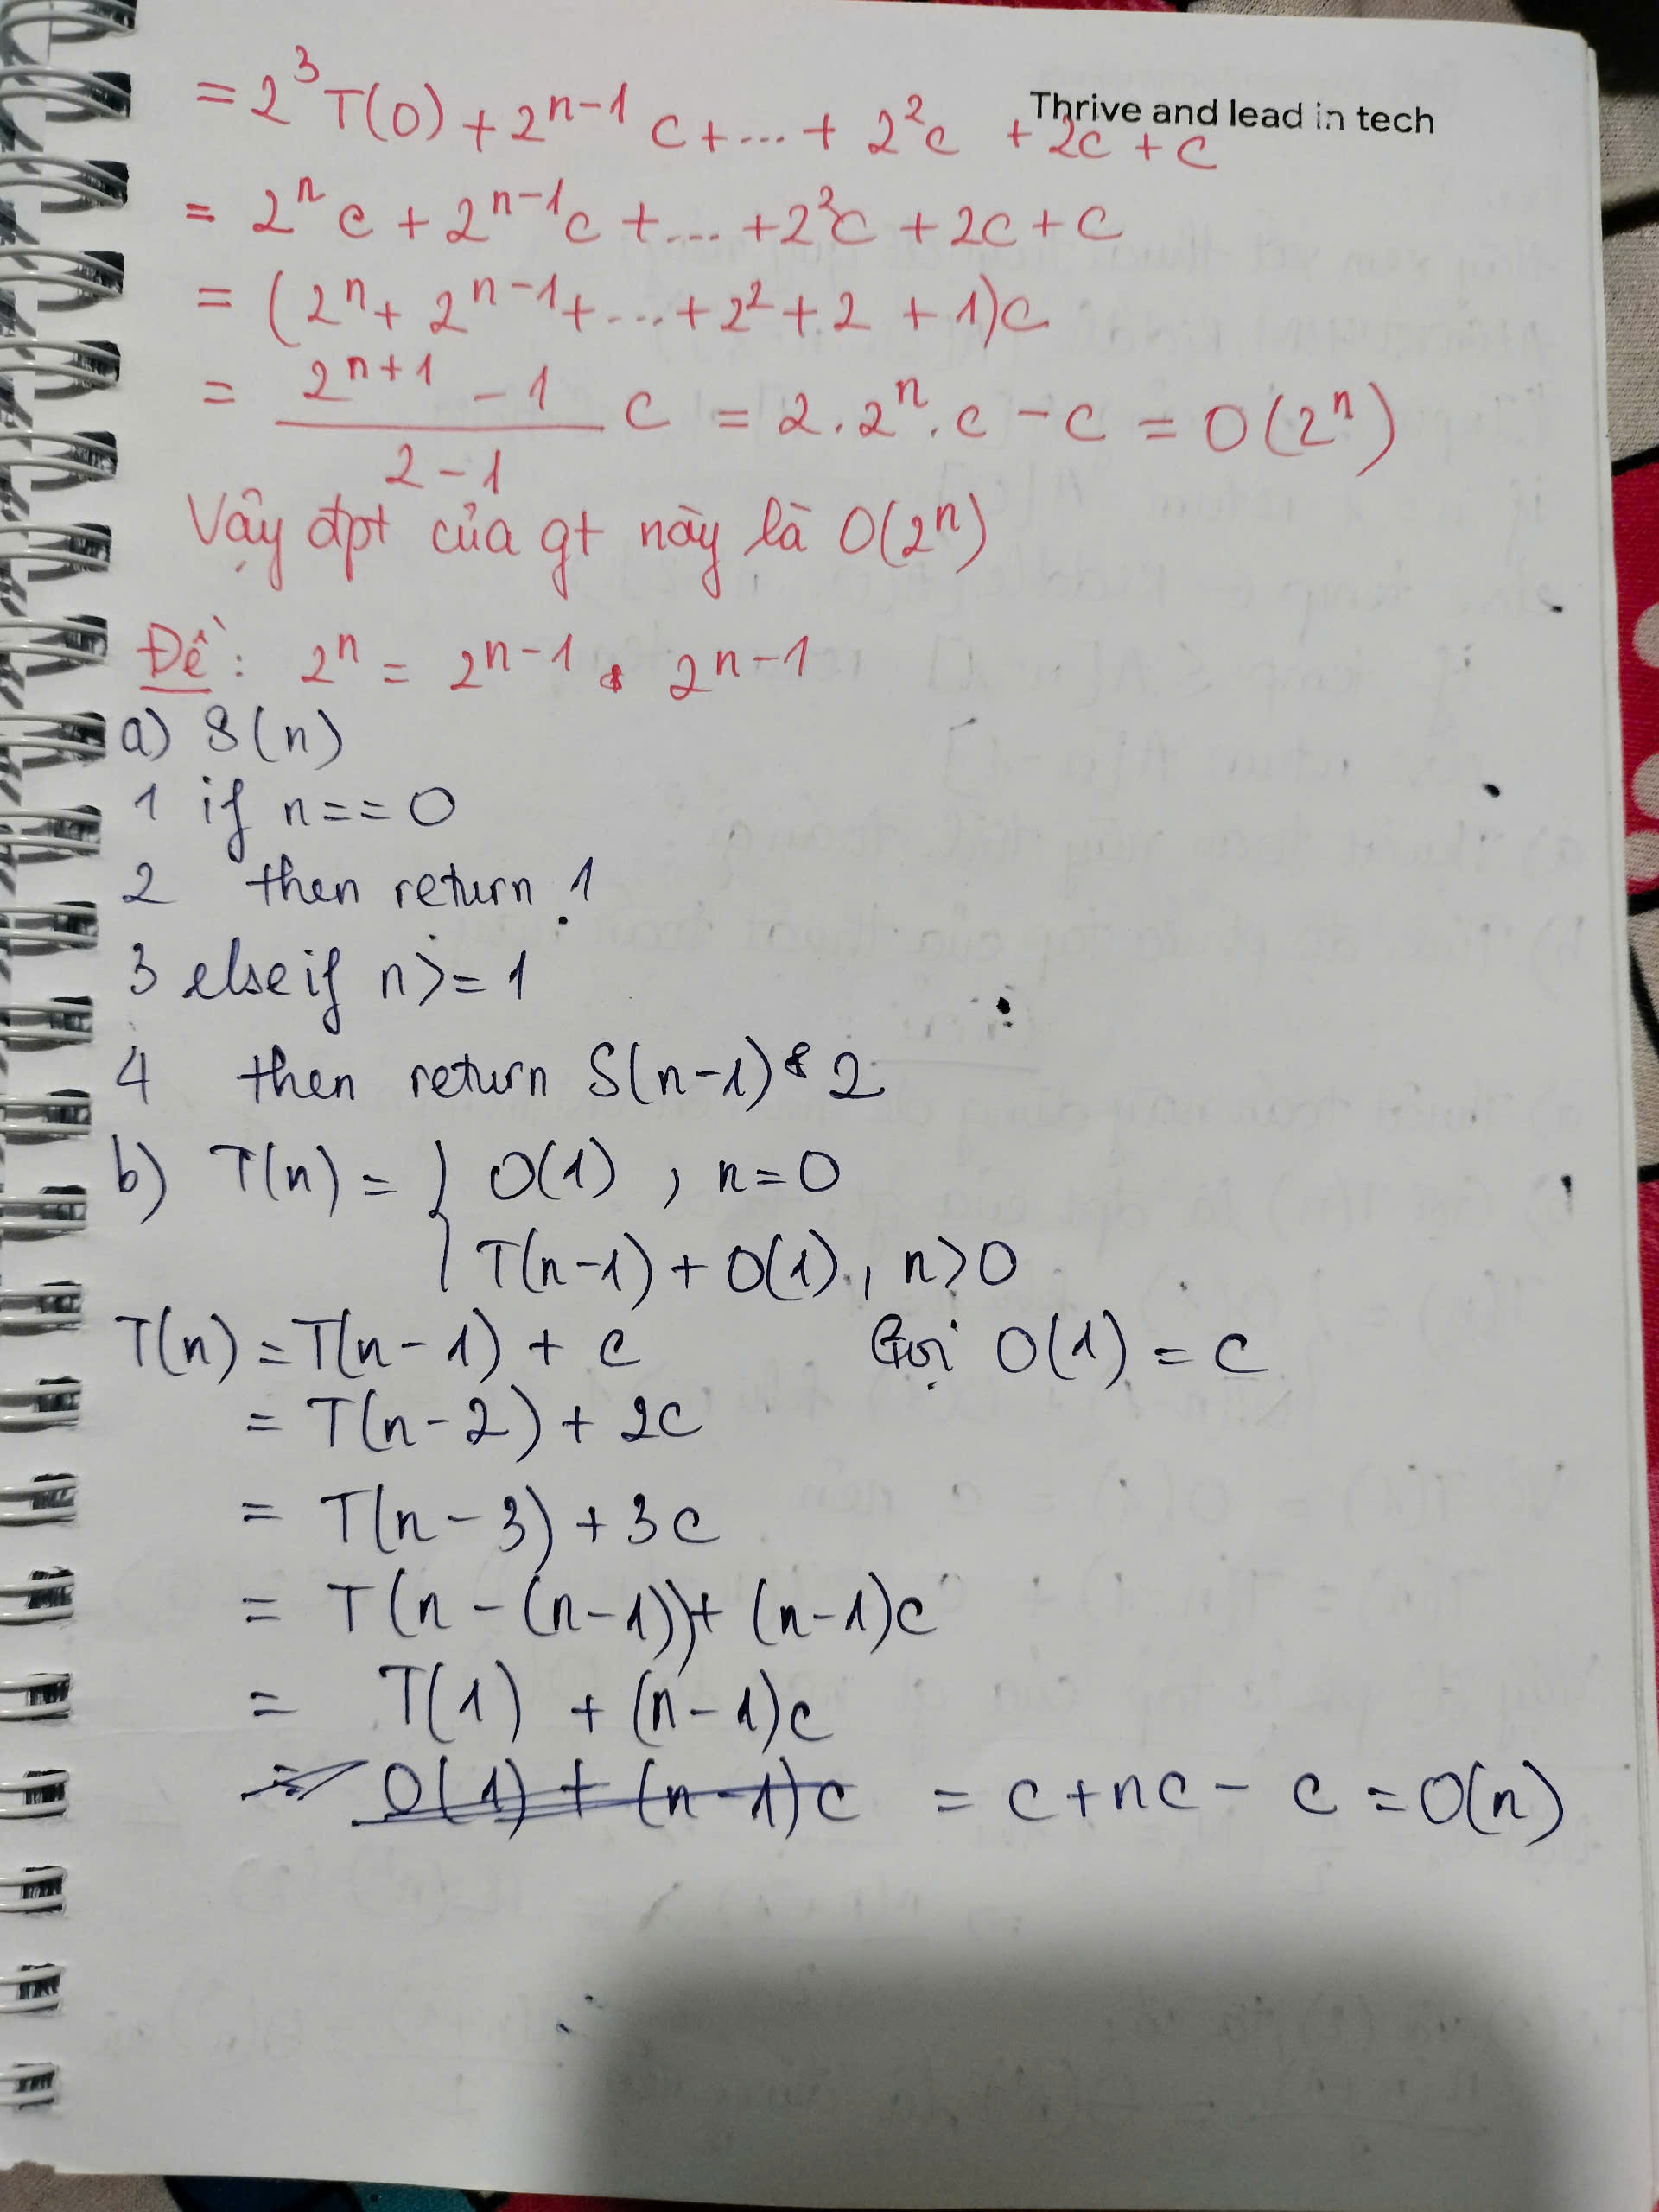 Thrive and lead in tech
= 2³ T(0) + 2ⁿ⁻¹ c + ... + 2² c + 2c + c
= 2ⁿ c + 2ⁿ⁻¹ c + ... + 2² c + 2c + c
= (2ⁿ + 2ⁿ⁻¹ + ... + 2² + 2 + 1) c
= (2ⁿ⁺¹ - 1)/(2 - 1) c = 2 . 2ⁿ . c - c = O(2ⁿ)
Vậy đpt của gt này là O(2ⁿ)
Đề: 2ⁿ = 2ⁿ⁻¹ * 2ⁿ⁻¹
a) S(n)
1 if n == 0
2 then return 1
3 else if n >= 1
4 then return S(n-1) * 2
b) T(n) = { O(1) , n = 0
T(n-1) + O(1) , n > 0
T(n) = T(n-1) + c Gọi O(1) = c
= T(n-2) + 2c
= T(n-3) + 3c
= T(n-(n-1)) + (n-1)c
= T(1) + (n-1)c
= O(1) + (n-1)c = c + nc - c = O(n)